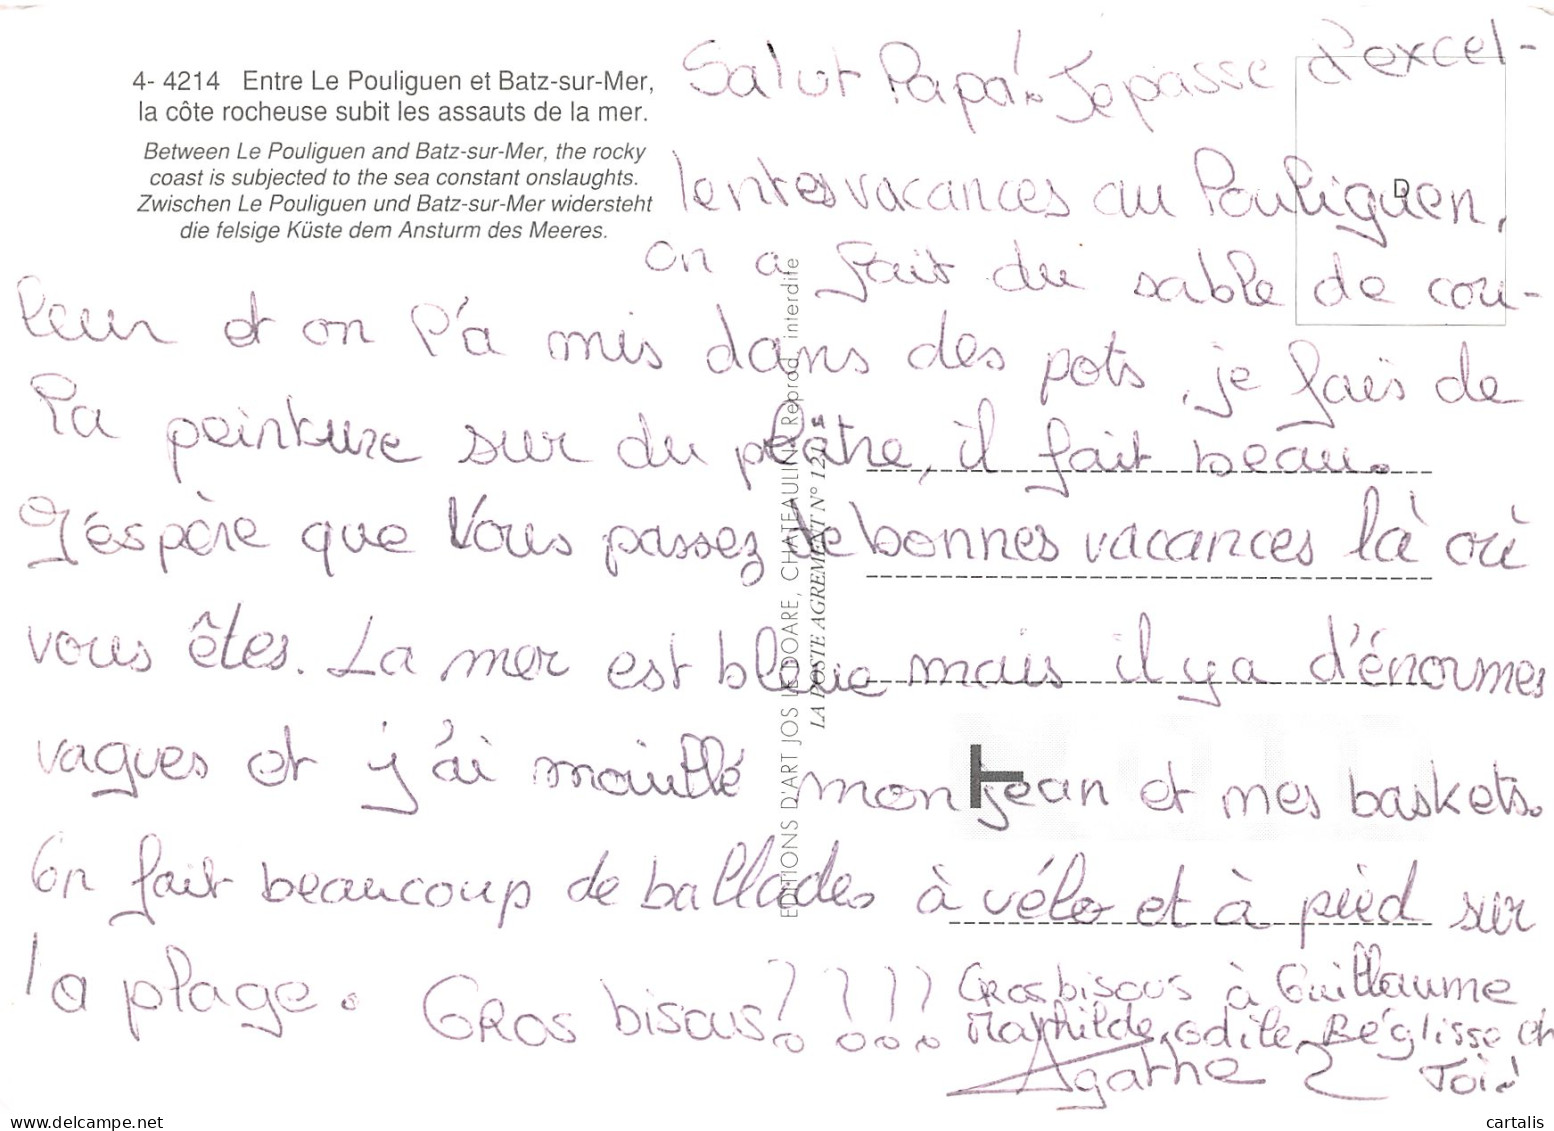 4- 4214 Entre Le Pouliguen et Batz-sur-Mer,
la côte rocheuse subit les assauts de la mer.
Between Le Pouliguen and Batz-sur-Mer, the rocky
coast is subjected to the sea constant onslaughts.
Zwischen Le Pouliguen und Batz-sur-Mer widersteht
die felsige Küste dem Ansturm des Meeres.
Salut Papa! Je passe d'excel-
lentes vacances au Pouliguen,
on a fait du sable de cou-
leur et on l'a mis dans des pots, je fais de
la peinture sur du plâtre, il fait beau.
J'espère que Vous passez de bonnes vacances là où
vous êtes. La mer est bleue mais il y a d'énormes
vagues et j'ai mouillé mon jean et mes baskets.
On fait beaucoup de ballades à vélo et à pied sur
la plage. Gros bisous! !!! Gros bisous à Guillaume
Mathilde, Odile, Béglisse et
Agathe Toi!
D
EDITIONS D'ART JOS LE DOARE, CHATEAULIN. Reprod. interdite
LA POSTE AGREMENT N°
delcampe.net
cartalis